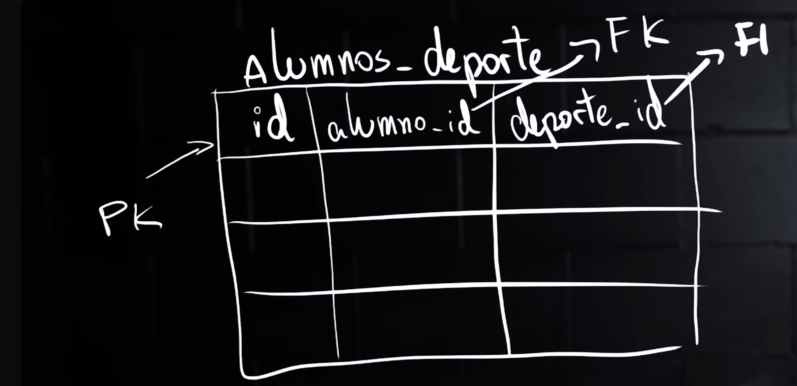 Alumnos_deporte
FK
id alumno_id deporte_id
PK